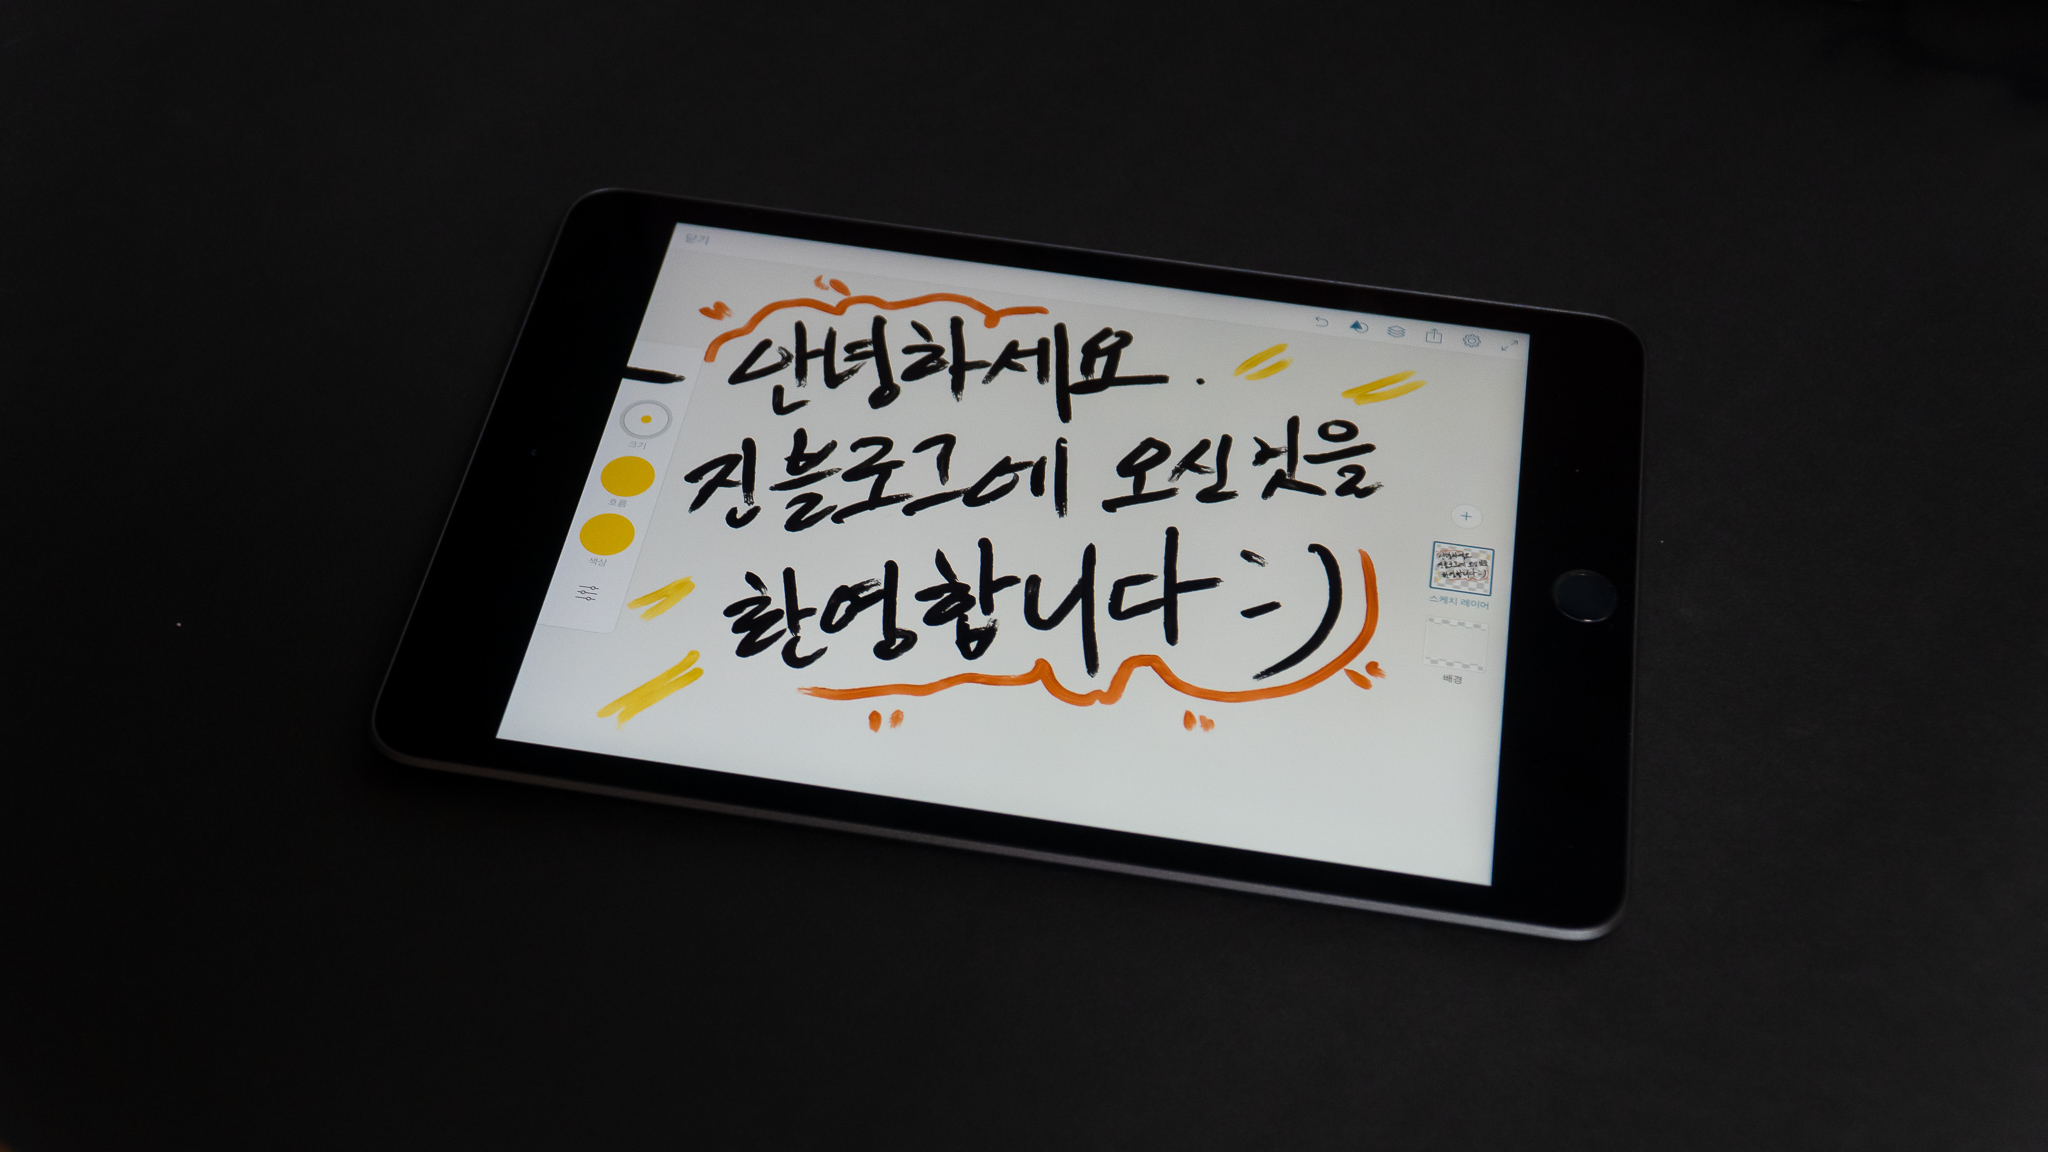 닫기
안녕하세요.
진블로그에 오신것을
환영합니다 :-)
크기
흐름
색상
스케치 레이어
배경